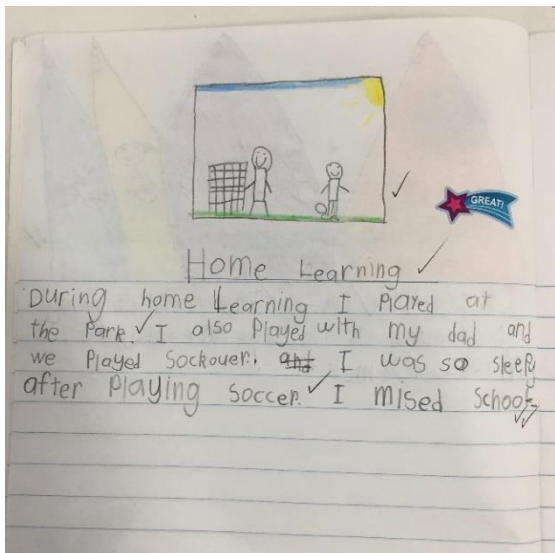 GREAT!
Home Learning
During home Learning I Played at
the Park. I also Played with my dad and
we Played Sockover. and I was so sleepy
after Playing soccer. I mised school.